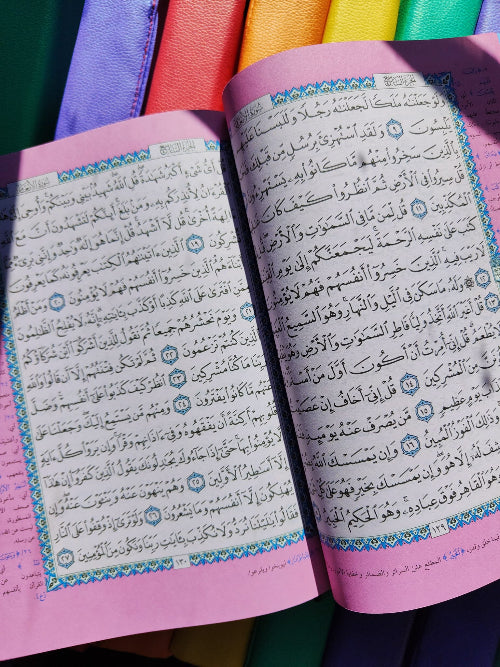 سورة الأنعام
الجزء السابع
وَلَوْ جَعَلْنَٰهُ مَلَكًا لَّجَعَلْنَٰهُ رَجُلًا وَلَلَبَسْنَا عَلَيْهِم
٩ وَلَقَدِ ٱسْتُهْزِئَ بِرُسُلٍ مِّن قَبْلِكَ
سَخِرُوا۟ مِنْهُم مَّا كَانُوا۟ بِهِۦ يَسْتَهْزِءُونَ
قُلْ سِيرُوا۟ فِى ٱلْأَرْضِ ثُمَّ ٱنظُرُوا۟ كَيْفَ كَانَ
ٱلْمُكَذِّبِينَ ١١ قُل لِّمَن مَّا فِى ٱلسَّمَٰوَٰتِ وَٱلْأَرْضِ
كَتَبَ عَلَىٰ نَفْسِهِ ٱلرَّحْمَةَ لَيَجْمَعَنَّكُمْ إِلَىٰ يَوْمِ
لَا رَيْبَ فِيهِ ٱلَّذِينَ خَسِرُوٓا۟ أَنفُسَهُمْ فَهُمْ لَا يُؤْمِنُونَ
وَلَهُۥ مَا سَكَنَ فِى ٱلَّيْلِ وَٱلنَّهَارِ وَهُوَ ٱلسَّمِيعُ
أَغَيْرَ ٱللَّهِ أَتَّخِذُ وَلِيًّا فَاطِرِ ٱلسَّمَٰوَٰتِ وَٱلْأَرْضِ وَهُوَ
قُلْ إِنِّىٓ أُمِرْتُ أَنْ أَكُونَ أَوَّلَ مَنْ أَسْلَمَ
مِنَ ٱلْمُشْرِكِينَ ١٤ قُلْ إِنِّىٓ أَخَافُ إِنْ عَصَيْتُ
يَوْمٍ عَظِيمٍ ١٥ مَّن يُصْرَفْ عَنْهُ يَوْمَئِذٍ
ٱلْفَوْزُ ٱلْمُبِينُ ١٦ وَإِن يَمْسَسْكَ ٱللَّهُ
لَهُۥٓ إِلَّا هُوَ وَإِن يَمْسَسْكَ بِخَيْرٍ فَهُوَ عَلَىٰ كُلِّ
ٱلْقَاهِرُ فَوْقَ عِبَادِهِۦ وَهُوَ ٱلْحَكِيمُ ٱلْخَبِيرُ
١٢٩
سورة الأنعام
الجزء السابع
أَىُّ شَىْءٍ أَكْبَرُ شَهَٰدَةً قُلِ ٱللَّهُ شَهِيدٌۢ بَيْنِى وَبَيْنَكُمْ وَأُوحِىَ
ٱلْقُرْءَانُ لِأُنذِرَكُم بِهِۦ وَمَنۢ بَلَغَ أَئِنَّكُمْ لَتَشْهَدُونَ أَنَّ مَعَ
ءَالِهَةً أُخْرَىٰ قُل لَّآ أَشْهَدُ قُلْ إِنَّمَا هُوَ إِلَٰهٌ وَٰحِدٌ وَإِنَّنِى بَرِىٓءٌ
تُشْرِكُونَ ١٩ ٱلَّذِينَ ءَاتَيْنَٰهُمُ ٱلْكِتَٰبَ يَعْرِفُونَهُۥ كَمَا يَعْرِفُونَ
أَبْنَآءَهُمُ ٱلَّذِينَ خَسِرُوٓا۟ أَنفُسَهُمْ فَهُمْ لَا يُؤْمِنُونَ ٢٠ وَمَنْ أَظْلَمُ
ٱفْتَرَىٰ عَلَى ٱللَّهِ كَذِبًا أَوْ كَذَّبَ بِـَٔايَٰتِهِۦٓ إِنَّهُۥ لَا يُفْلِحُ ٱلظَّٰلِمُونَ
٢١ وَيَوْمَ نَحْشُرُهُمْ جَمِيعًا ثُمَّ نَقُولُ لِلَّذِينَ أَشْرَكُوٓا۟ أَيْنَ شُرَكَآؤُكُمُ
ٱلَّذِينَ كُنتُمْ تَزْعُمُونَ ٢٢ ثُمَّ لَمْ تَكُن فِتْنَتُهُمْ إِلَّآ أَن قَالُوا۟ وَٱللَّهِ
رَبِّنَا مَا كُنَّا مُشْرِكِينَ ٢٣ ٱنظُرْ كَيْفَ كَذَبُوا۟ عَلَىٰٓ أَنفُسِهِمْ وَضَلَّ
عَنْهُم مَّا كَانُوا۟ يَفْتَرُونَ ٢٤ وَمِنْهُم مَّن يَسْتَمِعُ إِلَيْكَ وَجَعَلْنَا عَلَىٰ
قُلُوبِهِمْ أَكِنَّةً أَن يَفْقَهُوهُ وَفِىٓ ءَاذَانِهِمْ وَقْرًا وَإِن يَرَوْا۟ كُلَّ ءَايَةٍ
لَّا يُؤْمِنُوا۟ بِهَا حَتَّىٰٓ إِذَا جَآءُوكَ يُجَٰدِلُونَكَ يَقُولُ ٱلَّذِينَ كَفَرُوٓا۟ إِنْ هَٰذَآ
إِلَّآ أَسَٰطِيرُ ٱلْأَوَّلِينَ ٢٥ وَهُمْ يَنْهَوْنَ عَنْهُ وَيَنْـَٔوْنَ عَنْهُ وَإِن
يُهْلِكُونَ إِلَّآ أَنفُسَهُمْ وَمَا يَشْعُرُونَ ٢٦ وَلَوْ تَرَىٰٓ إِذْ وُقِفُوا۟ عَلَى ٱلنَّارِ
فَقَالُوا۟ يَٰلَيْتَنَا نُرَدُّ وَلَا نُكَذِّبَ بِـَٔايَٰتِ رَبِّنَا وَنَكُونَ مِنَ ٱلْمُؤْمِنِينَ ٢٧
١٣٠